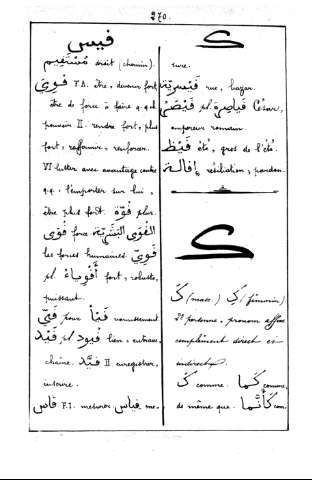 270.
فيس
مُسْتَقِيم droit (chemin).
قَوِيَ F.A. être, devenir fort,
être de force à faire q.q.ch
pouvoir II. rendre fort, plus
fort, raffermir, renforcer.
VI lutter avec avantage contre
q.q. l'emporter sur lui,
être plus fort. قُوَّة plur.
قُوًى force القُوَى البَشَرِيَّة
les forces humaines. قَوِيّ
pl أَقْوِيَاء fort, robuste,
puissant.
قَيْأ pour vomissement
قَيْد pl قُيُود lien, entrave,
chaîne. قَيَّد II enregistrer,
inscrire.
قَاس F.I. mesurer قِيَاس me-
ك
sure.
قَيْسَرِيَّة rue, bazar.
قَيْصَر pl قَيَاصِرَة César,
empereur romain.
قَيْظ été, gros de l'été.
إِقَالَة résiliation, pardon.
ك
كَ (masc.) كِ (féminin)
2e personne, pronom affixe
complément direct et
indirect.
كَ comme. كَمَا comme,
de même que. كَأَنَّمَا com-